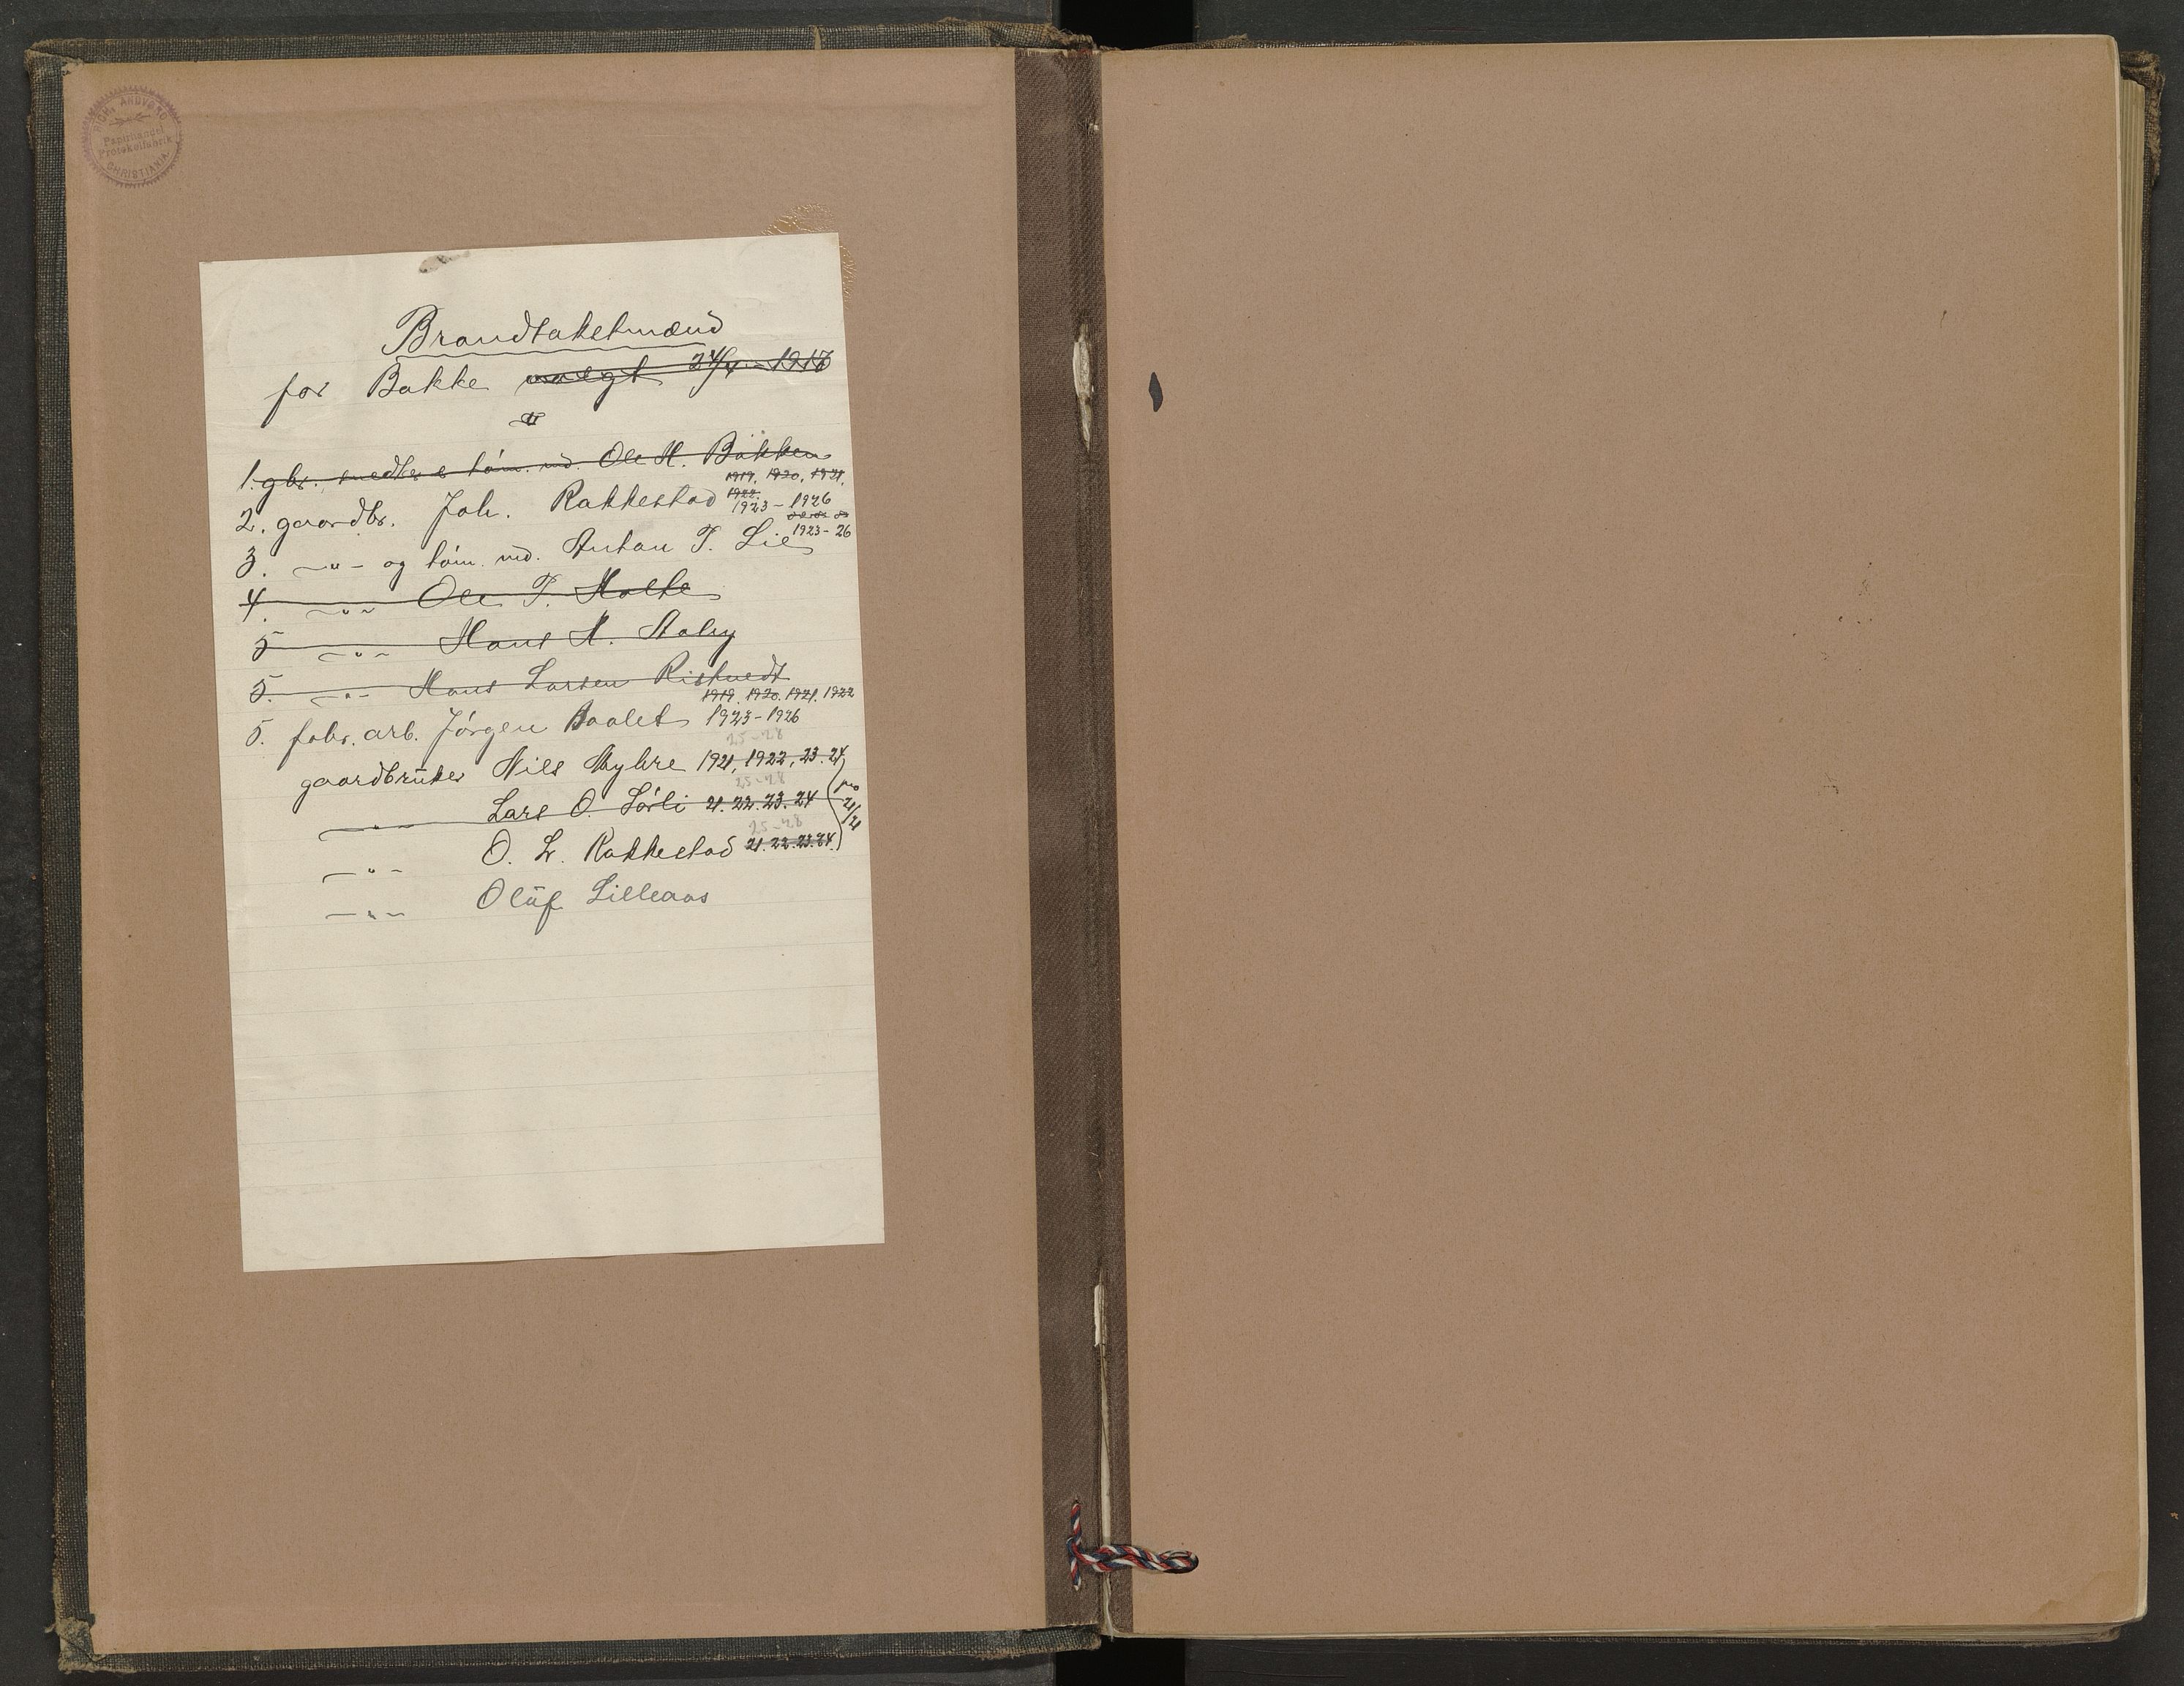 RICH. ANDVORD
Papirhandel
Protokolfabrik
CHRISTIANIA
Brandtakstmænd
for Bakke valgt 24/4 - 1917
1. gbr. snedker & tøm. md. Ole H. Bakken
1919. 1920, 1921.
1922.
2. gaardbr. Joh. Rakkestad 1923 - 1926
3. -"- og tøm. md. Anton T. Lie 1923 - 26
4. -"- Ole T. Holte
5 -"- Hans H.
5. -"- Hans Larsen Ristvedt
1919. 1920. 1921. 1922
5. fabr. arb. Jørgen 1923 - 1926
25 - 28
gaardbruker Nils Myhre 1921, 1922, 23. 24
25 - 28
-"- Lars O. Sørli 21. 22. 23. 24
25 - 28
-"- O. L. Rakkestad 21. 22. 23. 24.
-"- Oluf Lilleaas